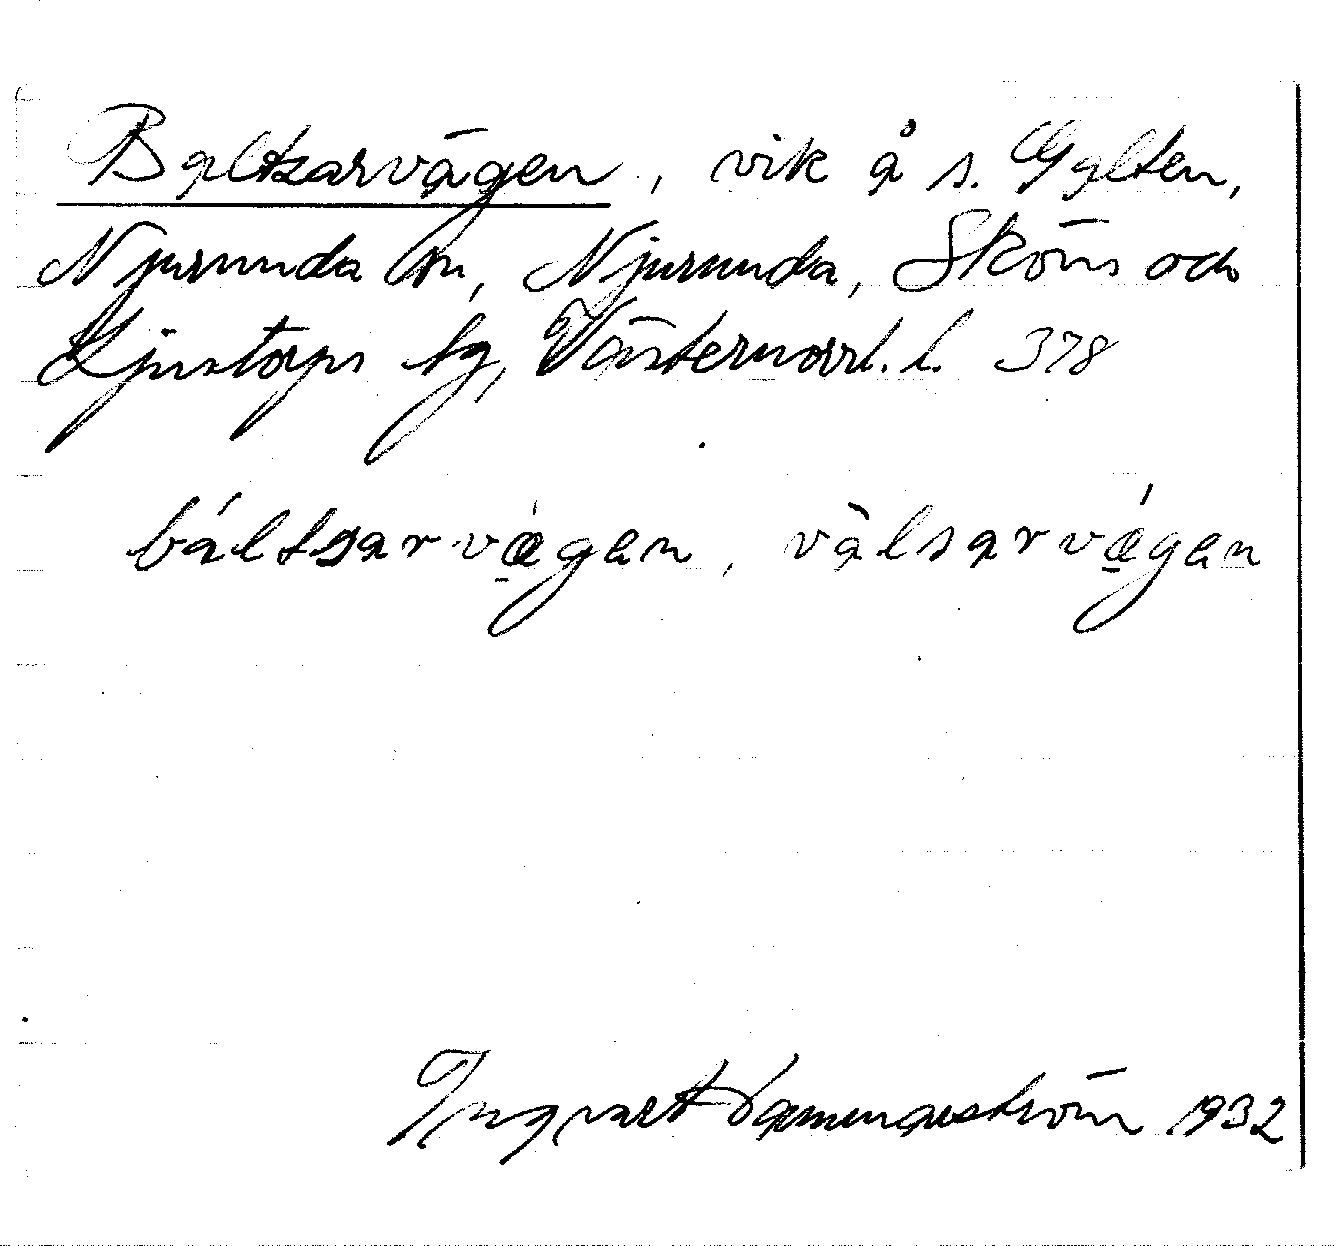 Baltzarvägen, vik å s. Galten,
Njurunda sn, Njurunda, Sköns och
Ljustorps tg, Västernorrl. l. 378
báltsarvæ̀gan, vàlsarvǽgan
Ingvart Hammarström 1932